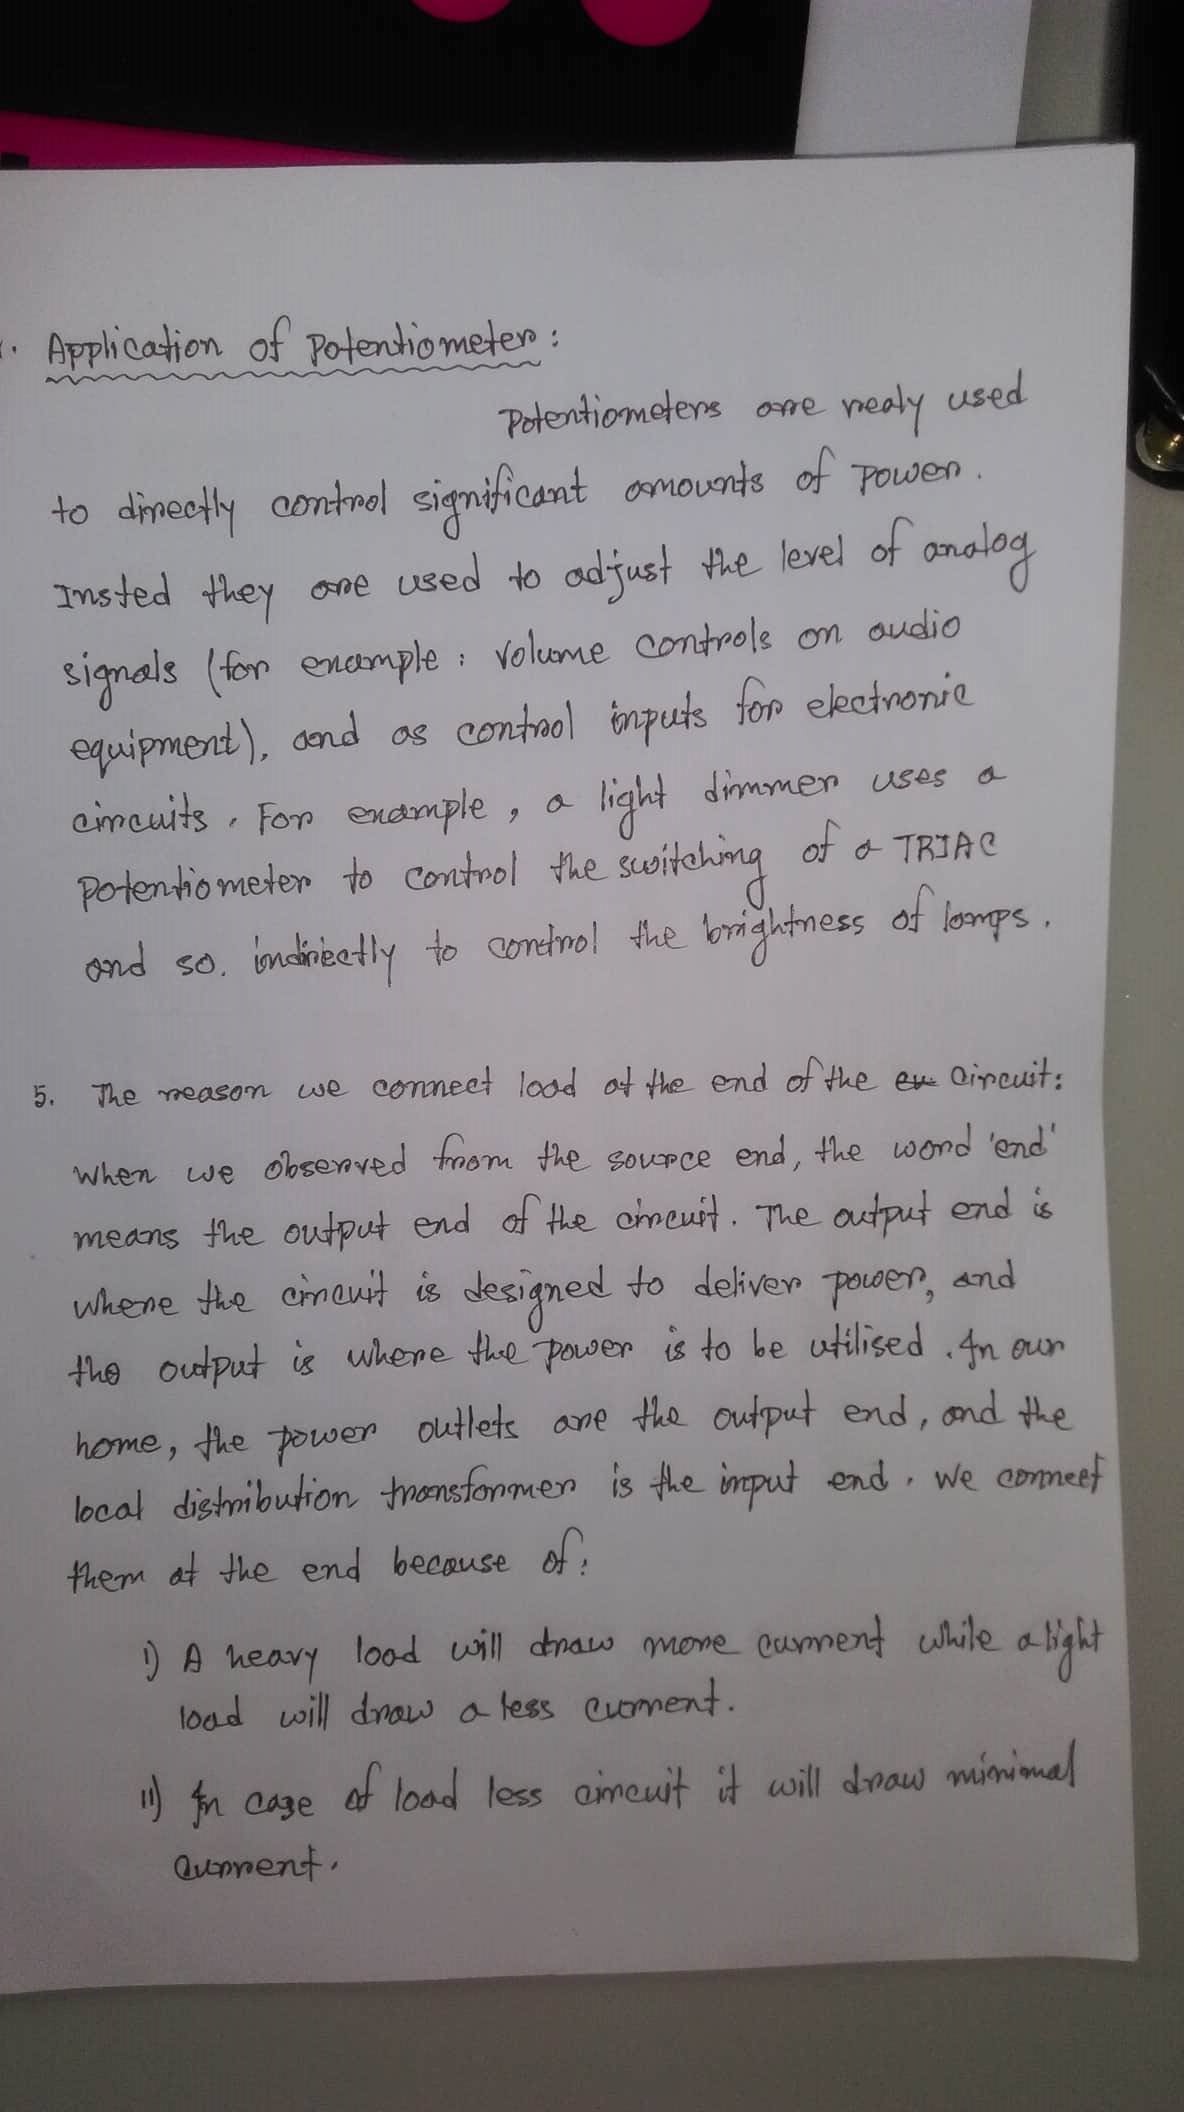 Application of Potentiometer:
Potentiometers are realy used
to directly control significant amounts of power.
Insted they are used to adjust the level of analog
signals (for example: volume controls on audio
equipment), and as control inputs for electronic
circuits. For example, a light dimmer uses a
potentiometer to control the switching of a TRIAC
and so. indirectly to control the brightness of lamps.
5. The reason we connect load at the end of the circuit:
when we observed from the source end, the word 'end'
means the output end of the circuit. The output end is
where the circuit is designed to deliver power, and
the output is where the power is to be utilised. In our
home, the power outlets are the output end, and the
local distribution transformer is the input end. We connect
them at the end because of:
i) A heavy load will draw more current while a light
load will draw a less current.
ii) In case of load less circuit it will draw minimal
current.